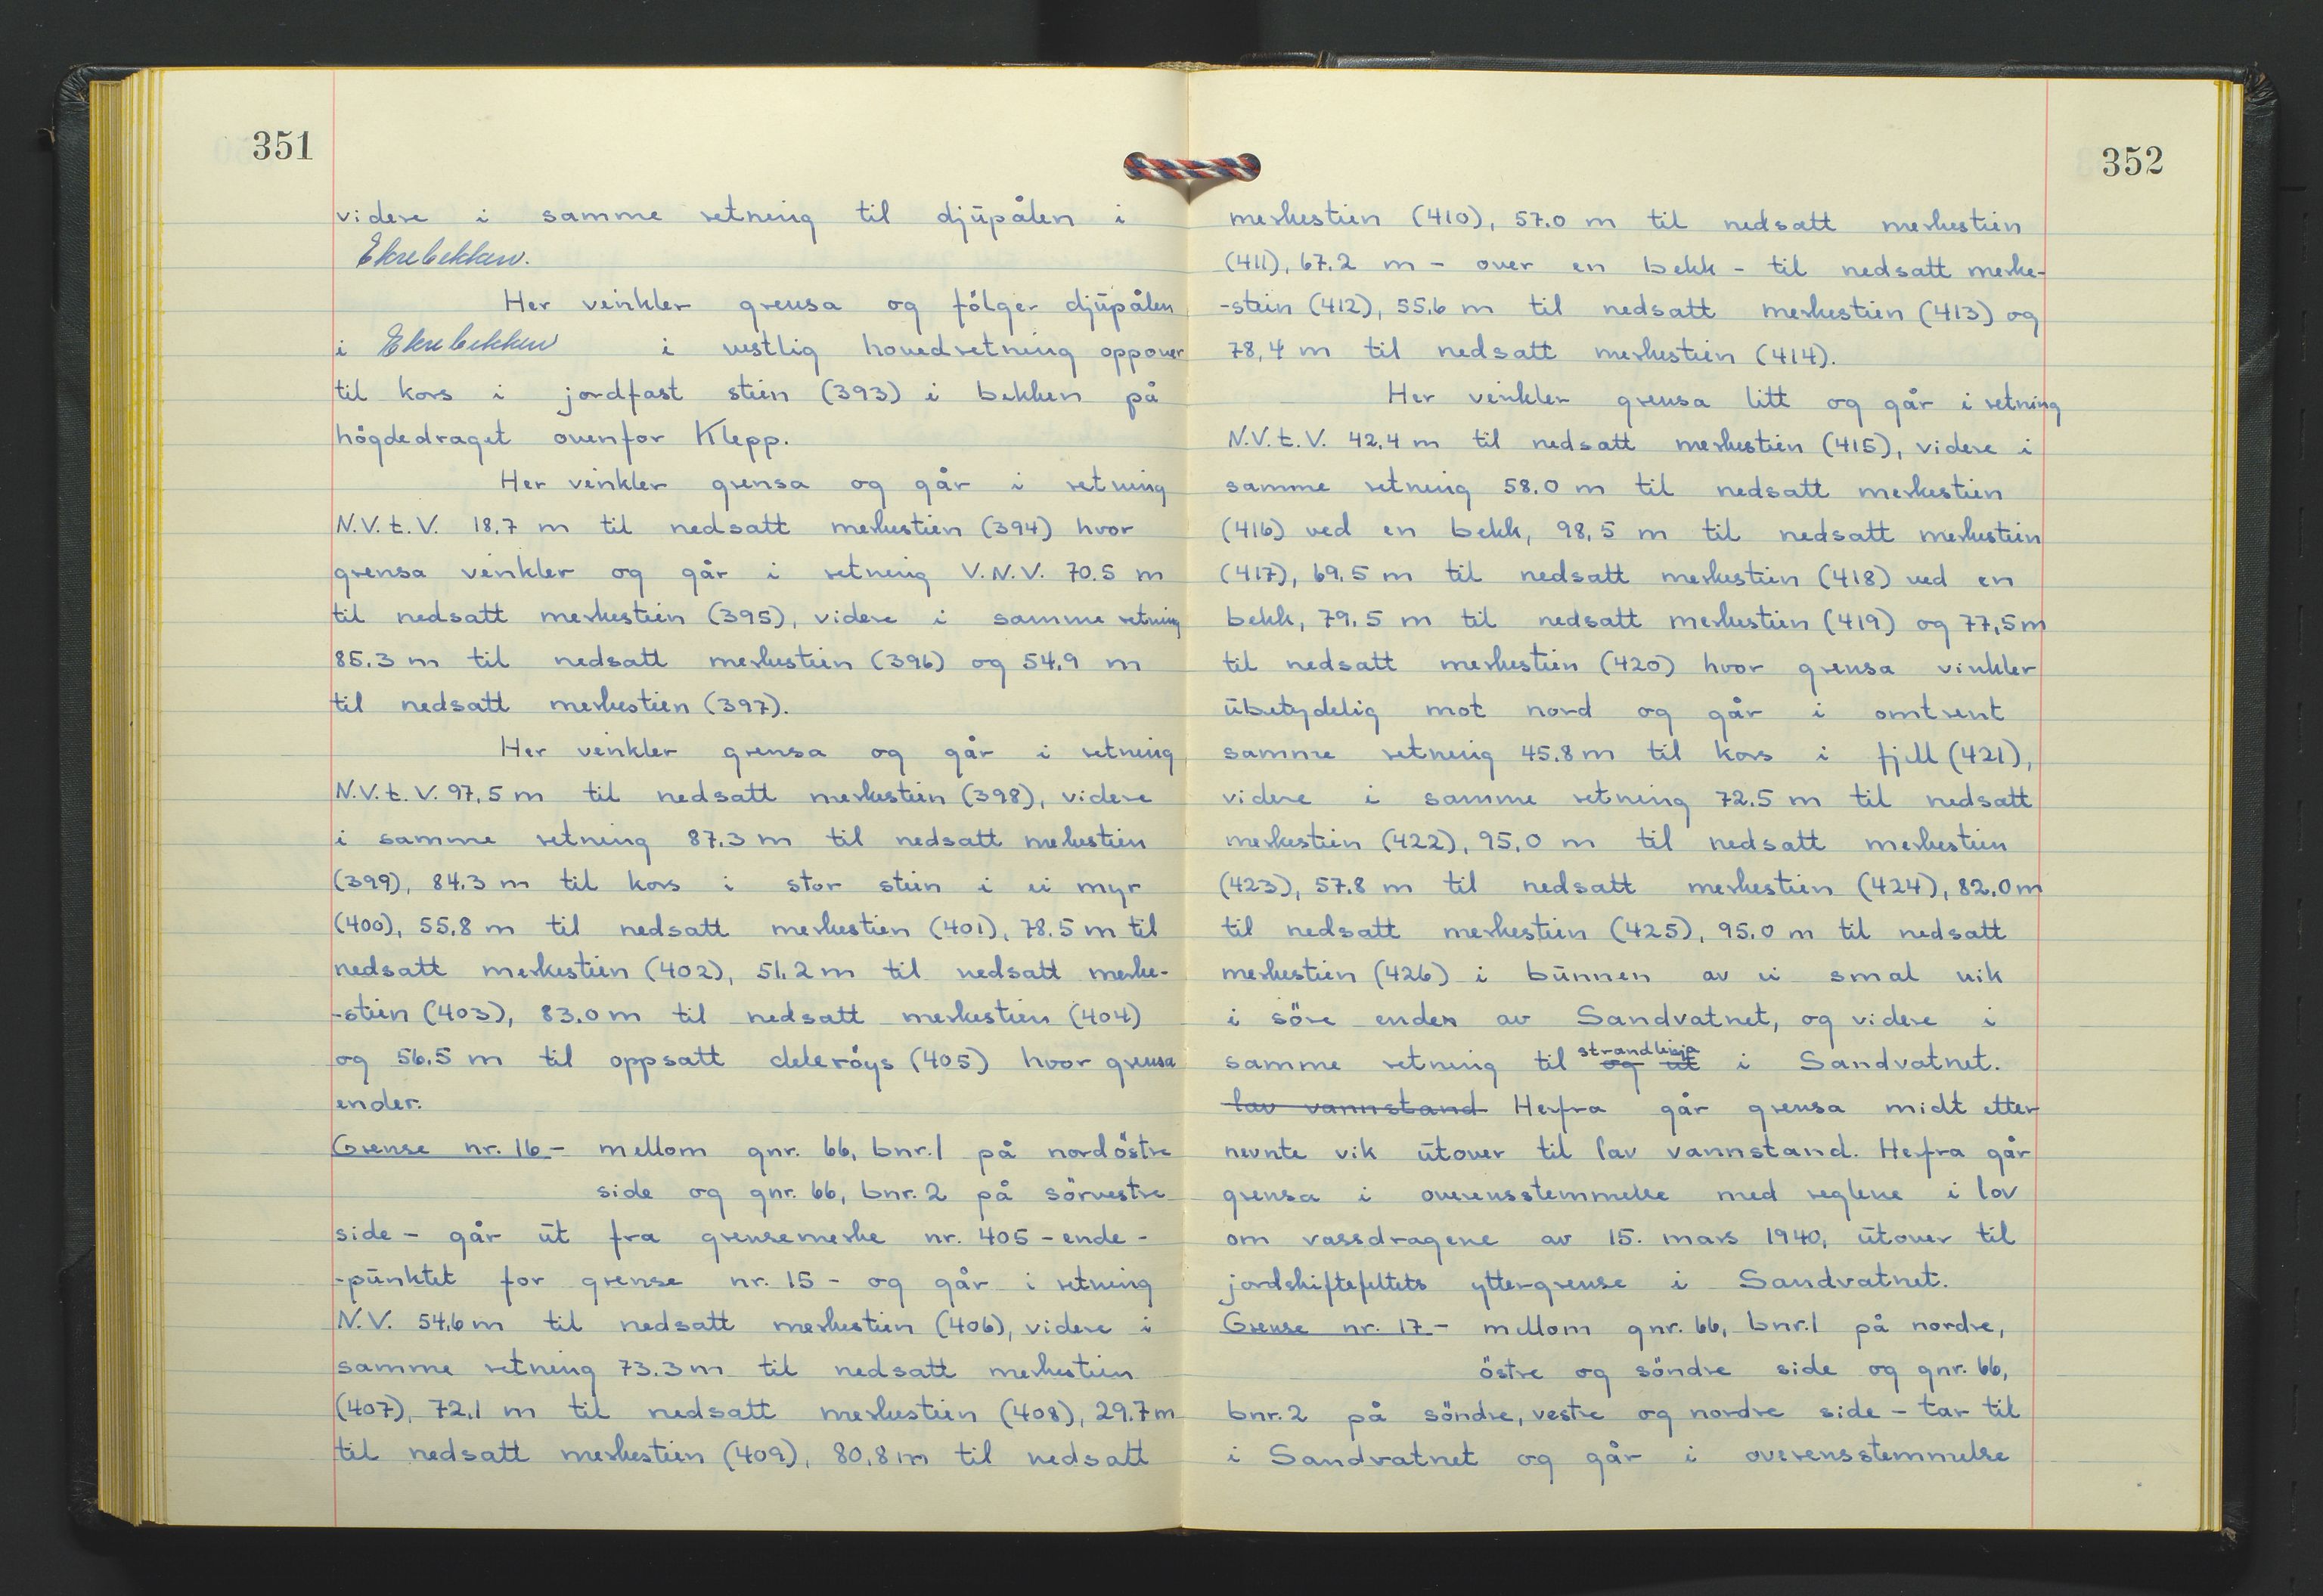 351
videre i samme retning til djupålen i
Ekrebekken.
Her vinkler grensa og fölger djupålen
i Ekrebekken i vestlig hovedretning oppover
til kors i jordfast stein (393) i bekken på
högdedraget ovenfor Klepp.
Her vinkler grensa og går i retning
N.V.t.V. 18.7 m til nedsatt merkestein (394) hvor
grensa vinkler og går i retning V.N.V. 70.5 m
til nedsatt merkestein (395), videre i samme retning
85.3 m til nedsatt merkestein (396) og 54.9 m
til nedsatt merkestein (397).
Her vinkler grensa og går i retning
N.V.t.V. 97,5 m til nedsatt merkestein (398), videre
i samme retning 87.3 m til nedsatt merkestein
(399), 84.3 m til kors i stor stein i ei myr
(400), 55.8 m til nedsatt merkestein (401), 78.5 m til
nedsatt merkestein (402), 51.2 m til nedsatt merke-
-stein (403), 83.0 m til nedsatt merkestein (404)
og 56.5 m til oppsatt deleröys (405) hvor grensa
ender.
Grense nr. 16 - mellom gnr. 66, bnr. 1 på nordöstre
side og gnr. 66, bnr. 2 på sörvestre
side - går ut fra grensemerke nr. 405 - ende-
-punktet for grense nr. 15 - og går i retning
N.V. 54.6 m til nedsatt merkestein (406), videre i
samme retning 73.3 m til nedsatt merkestein
(407), 72.1 m til nedsatt merkestein (408), 29.7 m
til nedsatt merkestein (409), 80.8 m til nedsatt
352
merkestein (410), 57.0 m til nedsatt merkestein
(411), 67.2 m - over en bekk - til nedsatt merke-
-stein (412), 55.6 m til nedsatt merkestein (413) og
78,4 m til nedsatt merkestein (414).
Her vinkler grensa litt og går i retning
N.V.t.V. 42.4 m til nedsatt merkestein (415), videre i
samme retning 58.0 m til nedsatt merkestein
(416) ved en bekk, 98,5 m til nedsatt merkestein
(417), 69.5 m til nedsatt merkestein (418) ved en
bekk, 79.5 m til nedsatt merkestein (419) og 77,5 m
til nedsatt merkestein (420) hvor grensa vinkler
ubetydelig mot nord og går i omtrent
samme retning 45.8 m til kors i fjell (421),
videre i samme retning 72.5 m til nedsatt
merkestein (422), 95.0 m til nedsatt merkestein
(423), 57.8 m til nedsatt merkestein (424), 82.0 m
til nedsatt merkestein (425), 95.0 m til nedsatt
merkestein (426) i bunnen av ei smal vik
i söre enden av Sandvatnet, og videre i
strandlinja
samme retning til og ut i Sandvatnet.
lav vannstand Herfra går grensa midt etter
nevnte vik utover til lav vannstand. Herfra går
grensa i overensstemmelse med reglene i lov
om vassdragene av 15. mars 1940, utover til
jordskiftefeltets yttergrense i Sandvatnet.
Grense nr. 17 - mellom gnr. 66, bnr. 1 på nordre,
östre og söndre side og gnr. 66,
bnr. 2 på söndre, vestre og nordre side - tar til
i Sandvatnet og går i overensstemmelse